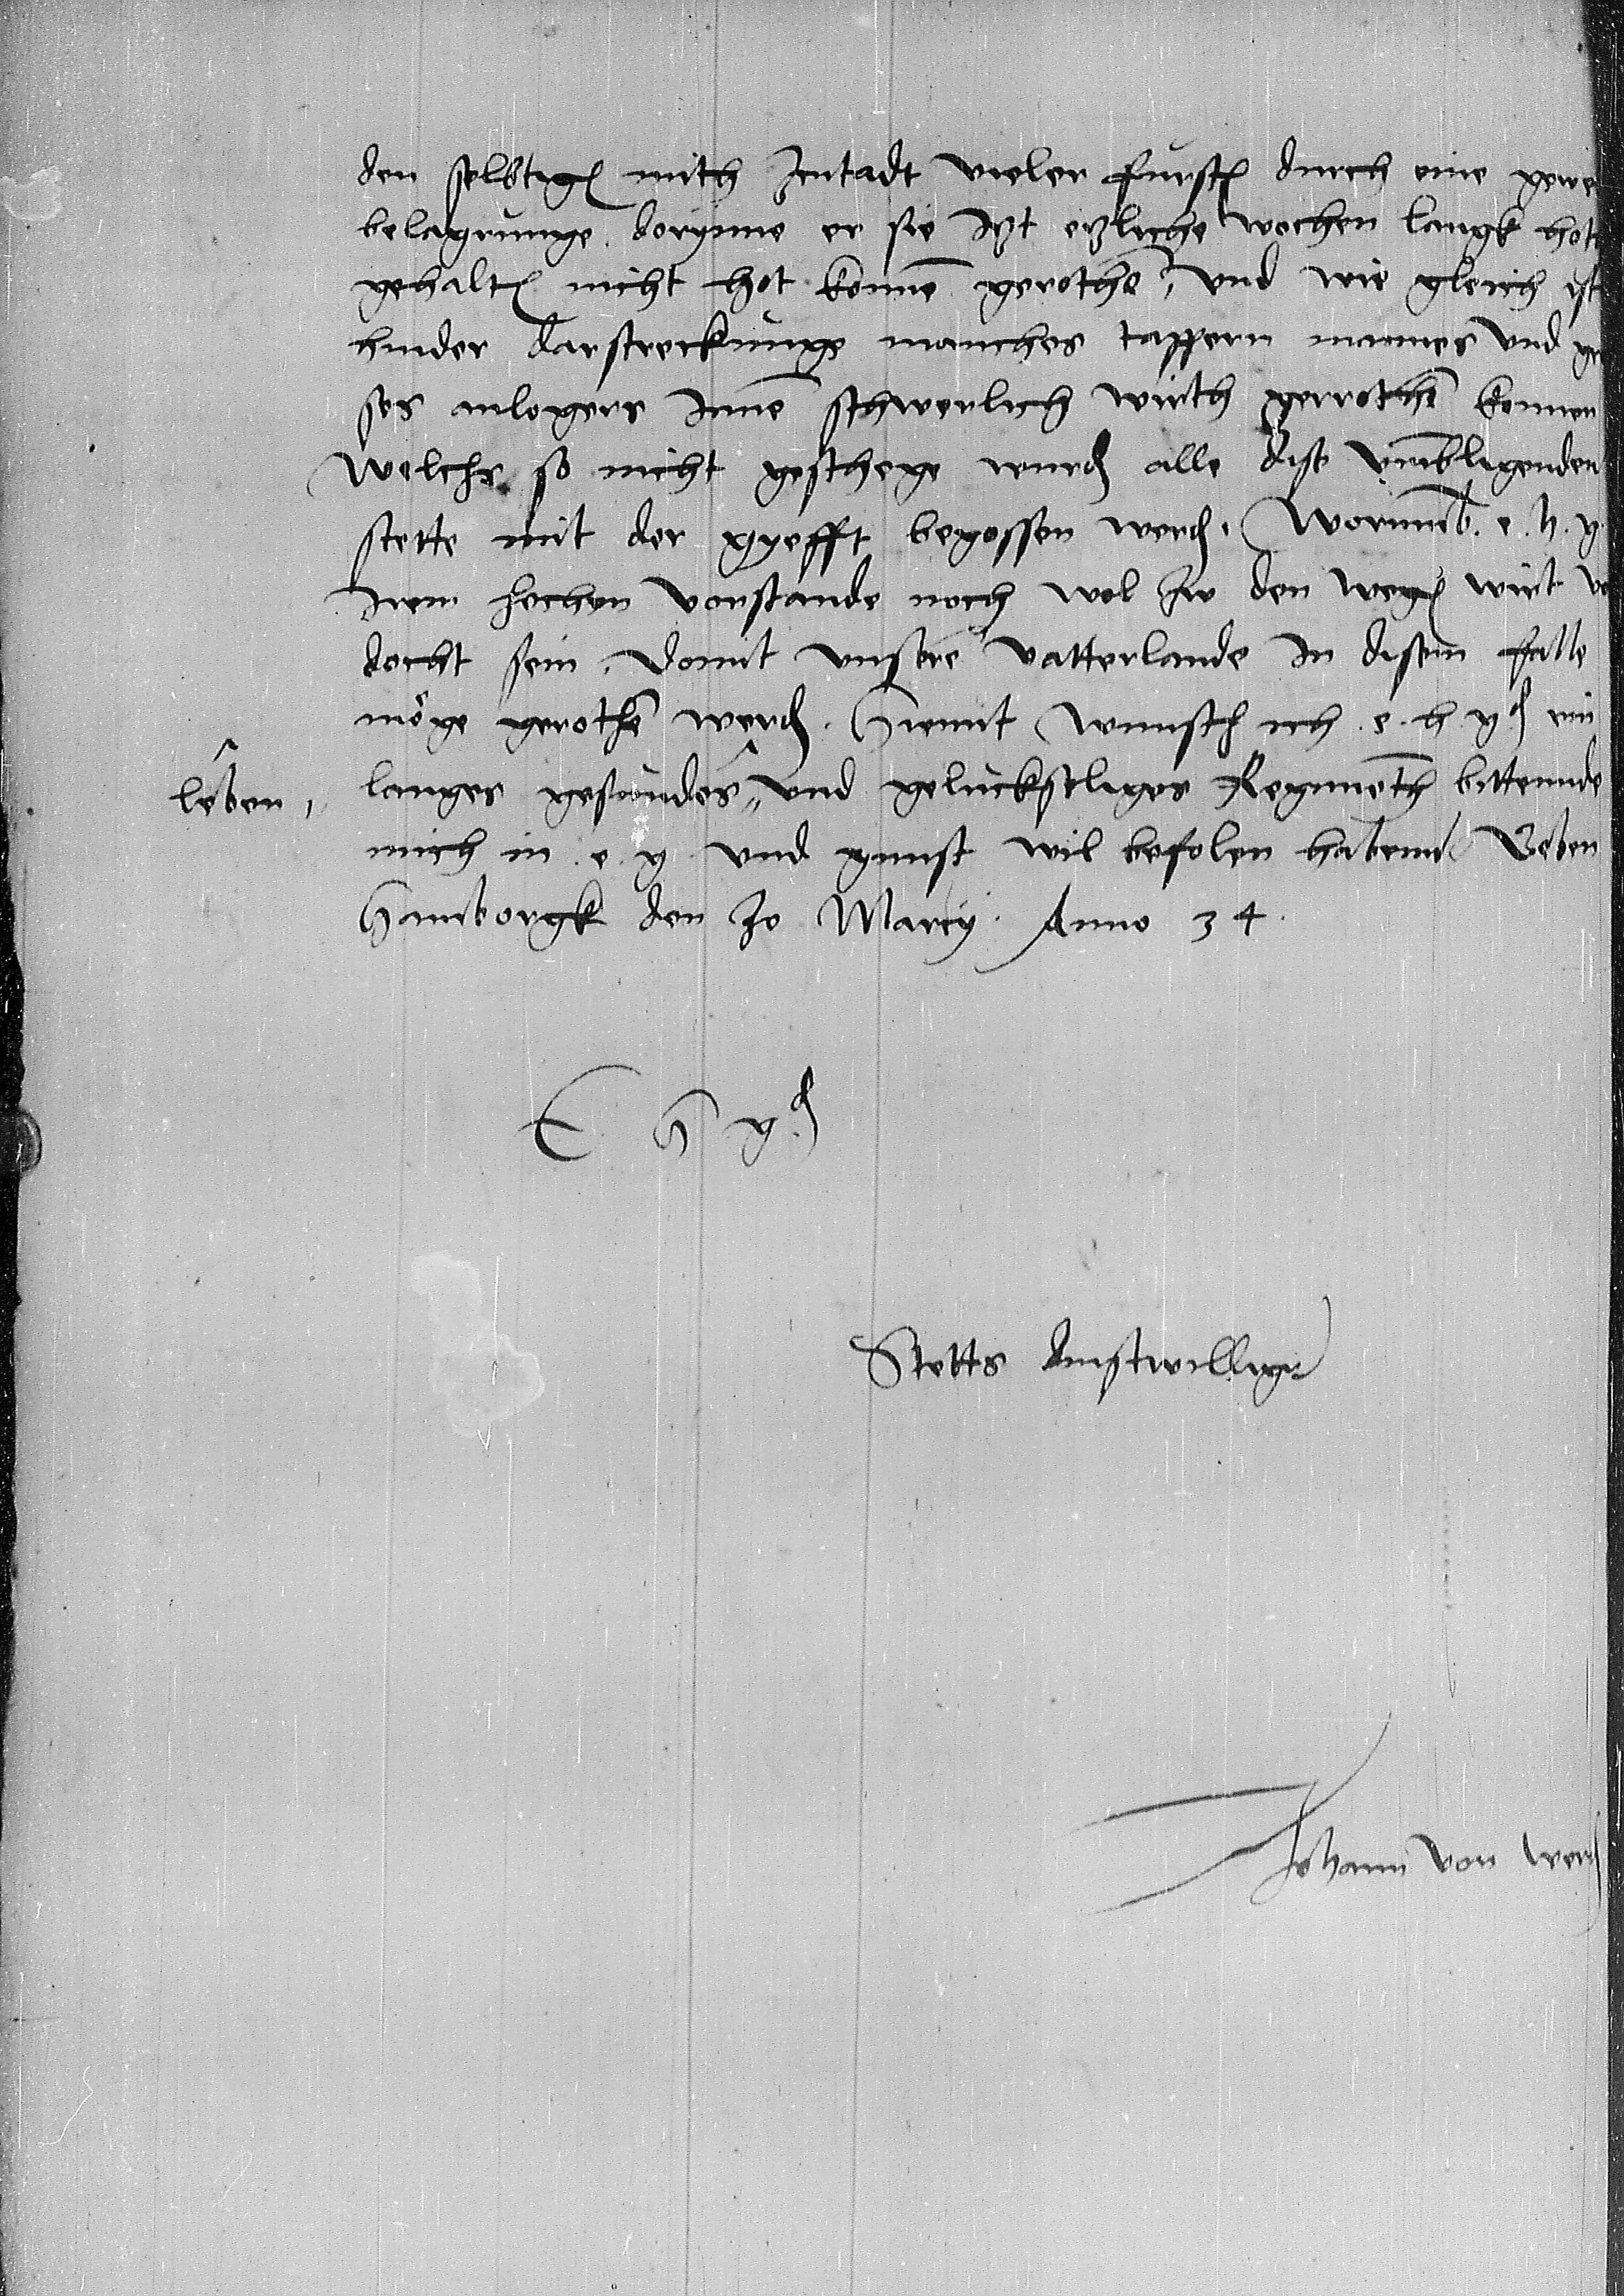 den selbtigen mith zutadt vieler fursten durch eine gewe
belagrunge dorynne er sie Itzt etzliche wochen langk hot
gehalten nicht hot konnē gerothē, vnd wie gleich ist
hinder darstreckunge manches tappern mannes vnd gr
ses anlegers Inne schwerlich wirth gerrothē konnen
Welchs so nicht geschege wurd alle dise vmbligenden
stette mit der gyefft begossen werden. Worumb. e. h. g.
Irem hochen vorstande noch wol zu den wegen wirt vo
docht sein, domit vnsere vatterlande In disem falle
möge gerothē werden. Hiemit wunsch ich e. h. gd ein
leben, langes gesundes vnd gelucksseliges Regimeth bittennde
mich in e. g. vnd gunst wil befolen haben Geben
Hamborgk den zo Marcy. Anno 34.
E H gd
Stetts dinstwilliger
Johann von Werd